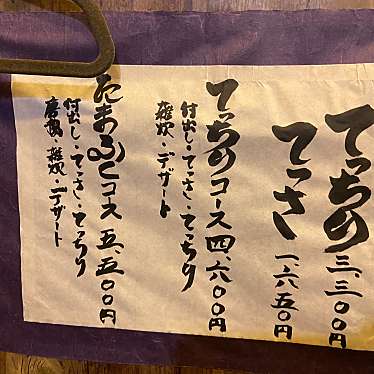 てっちり 三、三〇〇円
てっさ 一、六五〇円
てっちりコース 四、六〇〇円
付出し・てっさ・てっちり
雑炊・デザート
たまふくコース 五、五〇〇円
付出し・てっさ・てっちり
唐揚・雑炊・デザート